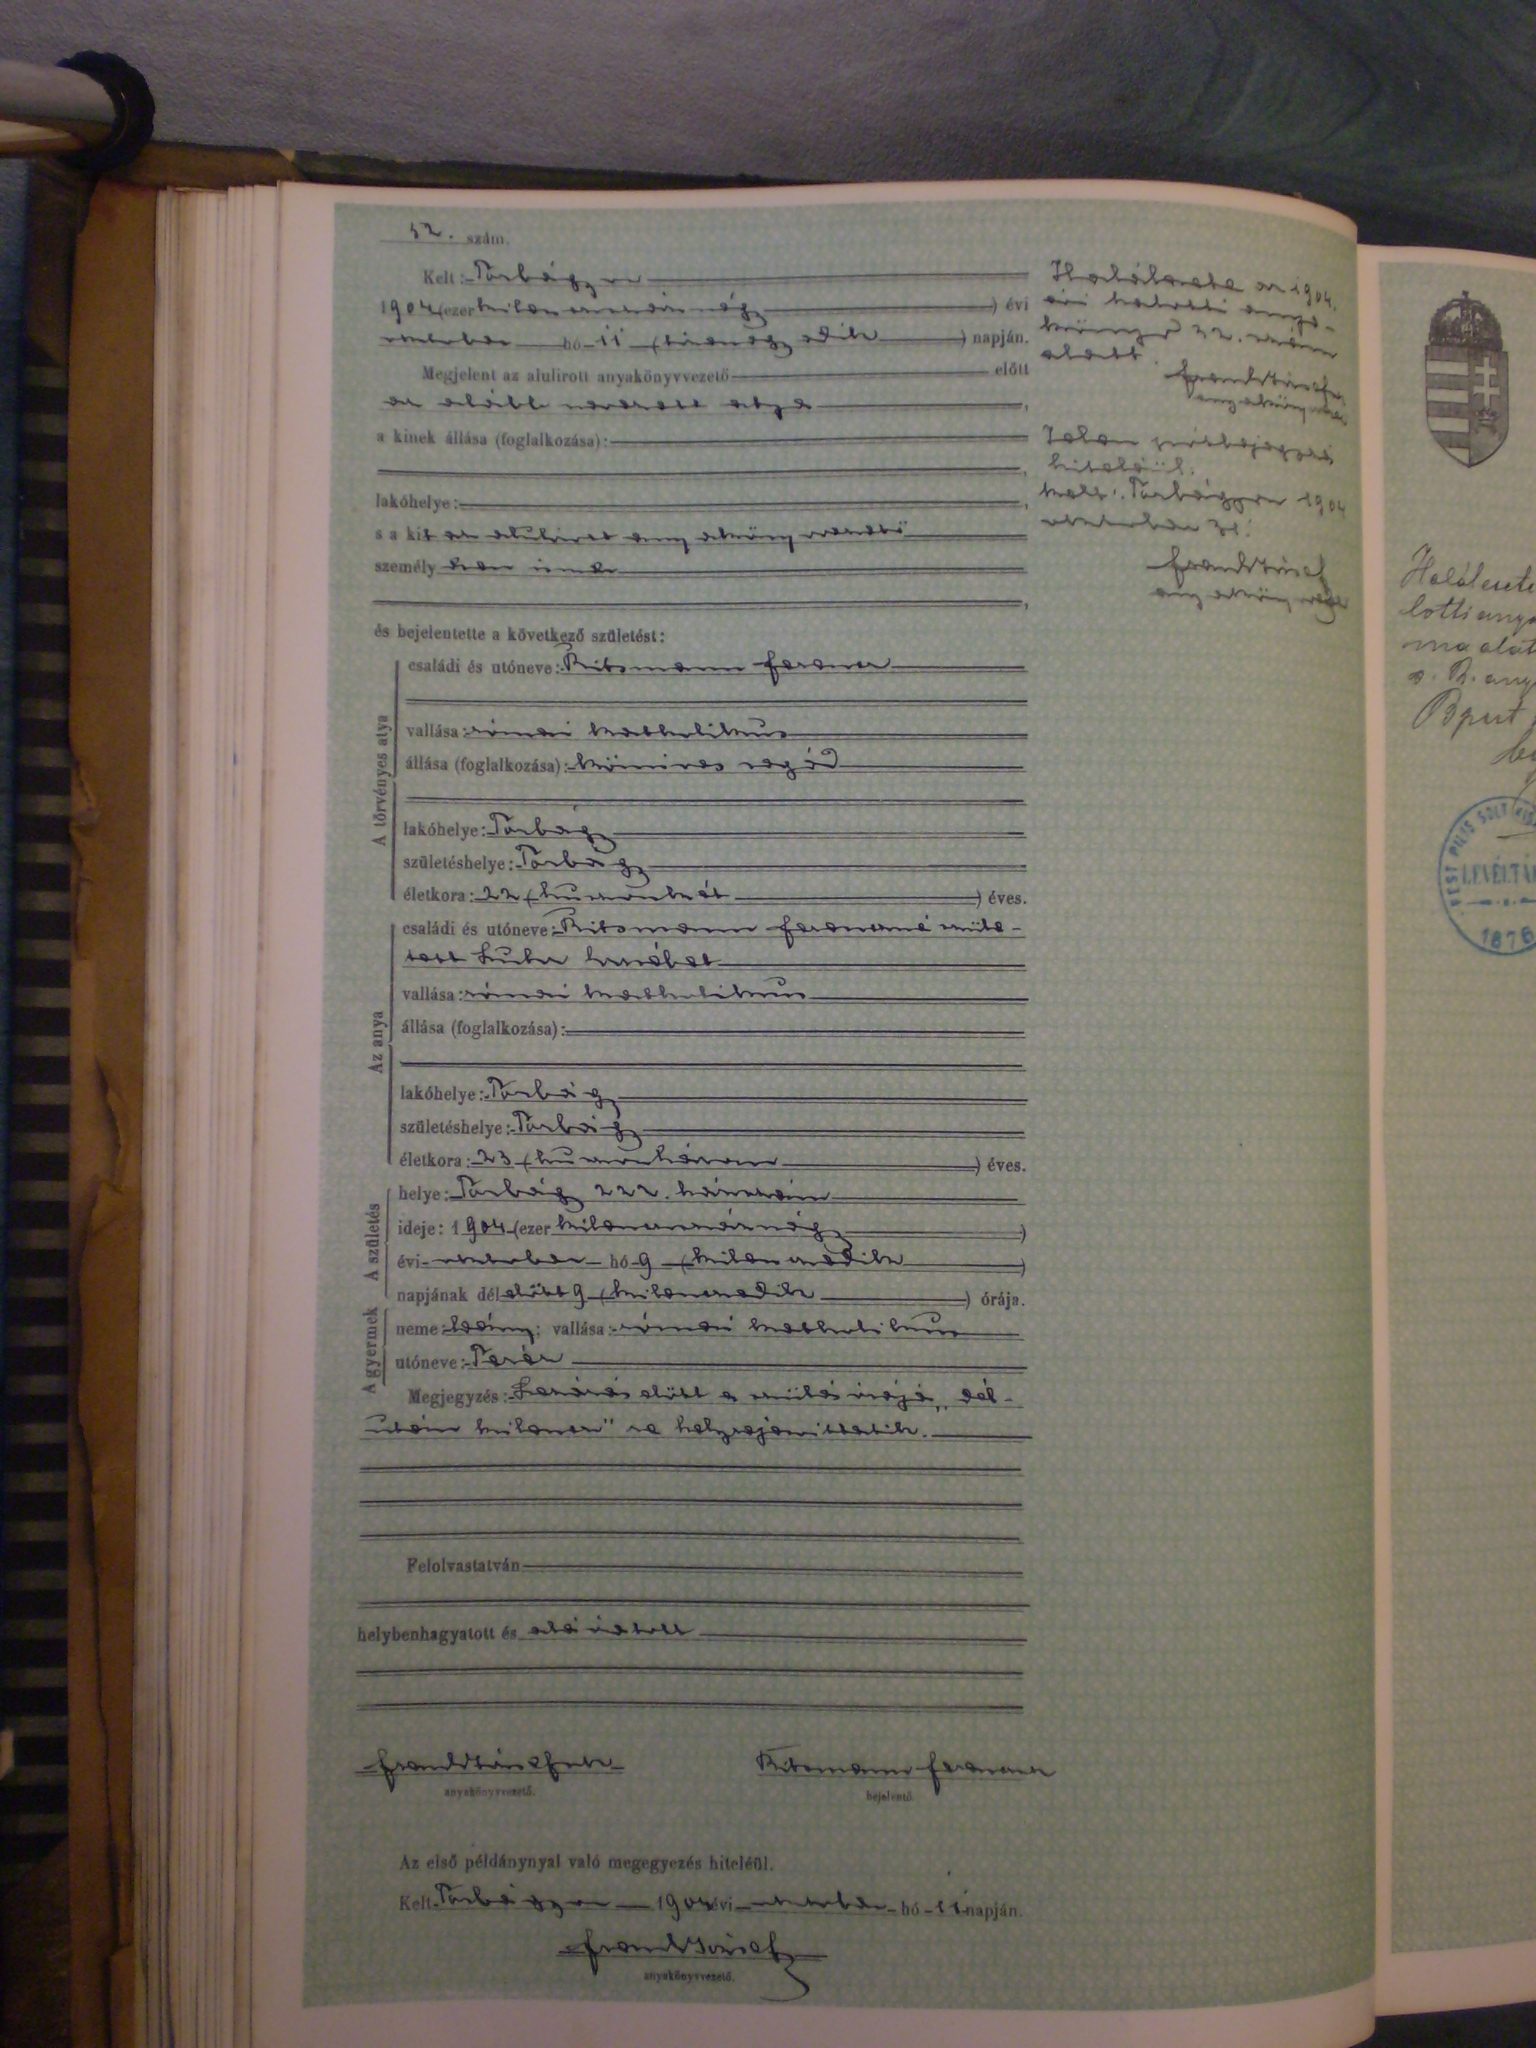 52. szám.
Kelt: Torbágyon
1904 (ezer kilencszáznégy) évi
október hó 11 (tizenegyedik) napján.
Megjelent az alulirott anyakönyvvezető előtt
az alább nevezett atya,
a kinek állása (foglalkozása):
lakóhelye:
s a kit az alulirott anyakönyvvezető
személyesen ismer,
és bejelentette a következő születést:
A törvényes atya
családi és utóneve: Ritsmann Ferencz
vallása: római katholikus
állása (foglalkozása): kőmives segéd
lakóhelye: Torbágy
születéshelye: Torbágy
életkora: 22 (huszonkét) éves.
Az anya
családi és utóneve: Ritsmann Ferenczné szüle-
tett
vallása: római katholikus
állása (foglalkozása):
lakóhelye: Torbágy
születéshelye: Torbágy
életkora: 23 (huszonhárom) éves.
A születés
helye: Torbágy 222. házszám
ideje: 1904 (ezer kilencszáznégy)
évi október hó 9 (kilenczedik)
napjának délelőtt 9 (kilenczedik) órája.
A gyermek
neme: leány; vallása: római katholikus
utóneve: Teréz
Megjegyzés: Lezárás előtt a szülés órája „dél-
után kilencz" re helyreigazittatik.
Felolvastatván
helybenhagyatott és aláiratott
anyakönyvvezető.
Ritsmann Ferencz
bejelentő.
Az első példánynyal való megegyezés hiteléül.
Kelt Torbágyon 1904 évi október hó 11 napján.
anyakönyvvezető.
Halálesete az 1904.
évi halotti anya-
könyv 22. szám
alatt.
anyakönyvvez
Jelen utóbejegyzés
hiteléül.
Kelt: Torbágyon 1904
október 31.
anyakönyvvez
Halálesete
lotti anya
ma alat
LEVÉLTÁ
1876